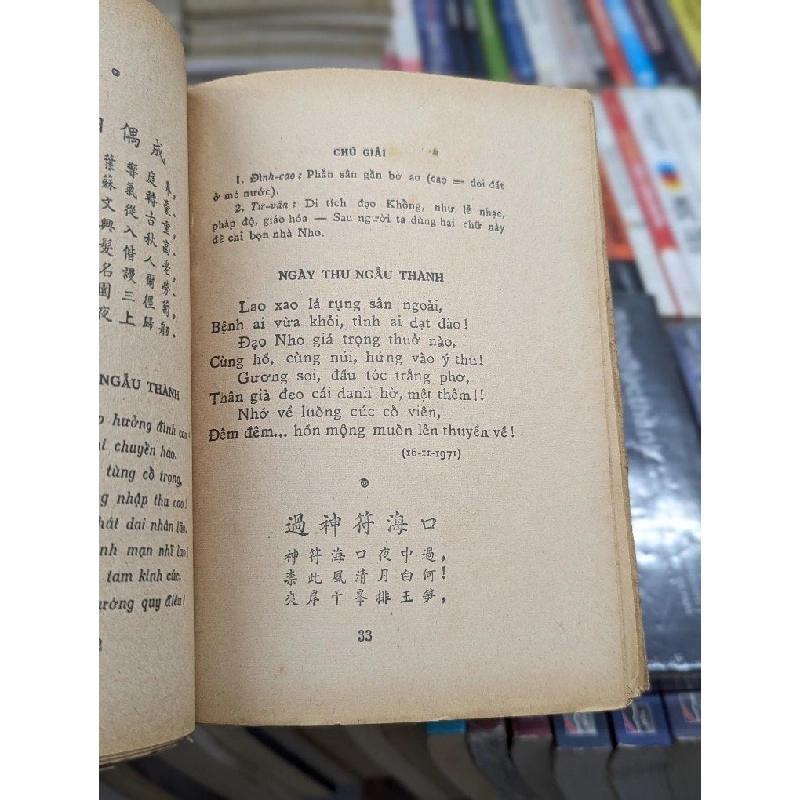 偶成
葉蘇文興髮名園夜
響氣從入偕謾三上
庭聘古秋人爾徑歸
NGẪU THÀNH
hưởng đình cao
chuyển hào.
tùng cổ trọng,
nhập thu cao!
phát dai nhân lão,
mạn nhĩ lao!
tam kinh cúc,
thường quy điều!
CHÚ GIẢI
1. Đình-cao: Phần sân gần bờ ao (cao = doi đất
ở mé nước).
2. Tư-văn: Di tích đạo Khổng, như lễ nhạc,
pháp độ, giáo hóa — Sau người ta dùng hai chữ này
để chỉ bọn nhà Nho.
NGÀY THU NGẪU THÀNH
Lao xao lá rụng sân ngoài,
Bệnh ai vừa khỏi, tình ai dạt dào!
Đạo Nho giá trọng thuở nào,
Cùng hồ, cùng núi, hứng vào ý thu!
Gương soi, đầu tóc trắng phơ,
Thân già đeo cái danh hờ, mệt thêm!!
Nhớ về luống cúc cố viên,
Đêm đêm... hồn mộng muốn lên thuyền về!
(16-11-1971)
過神符海口
神符海口夜中過,
柰此風清月白何!
夾岸千峯排玉笋,
33